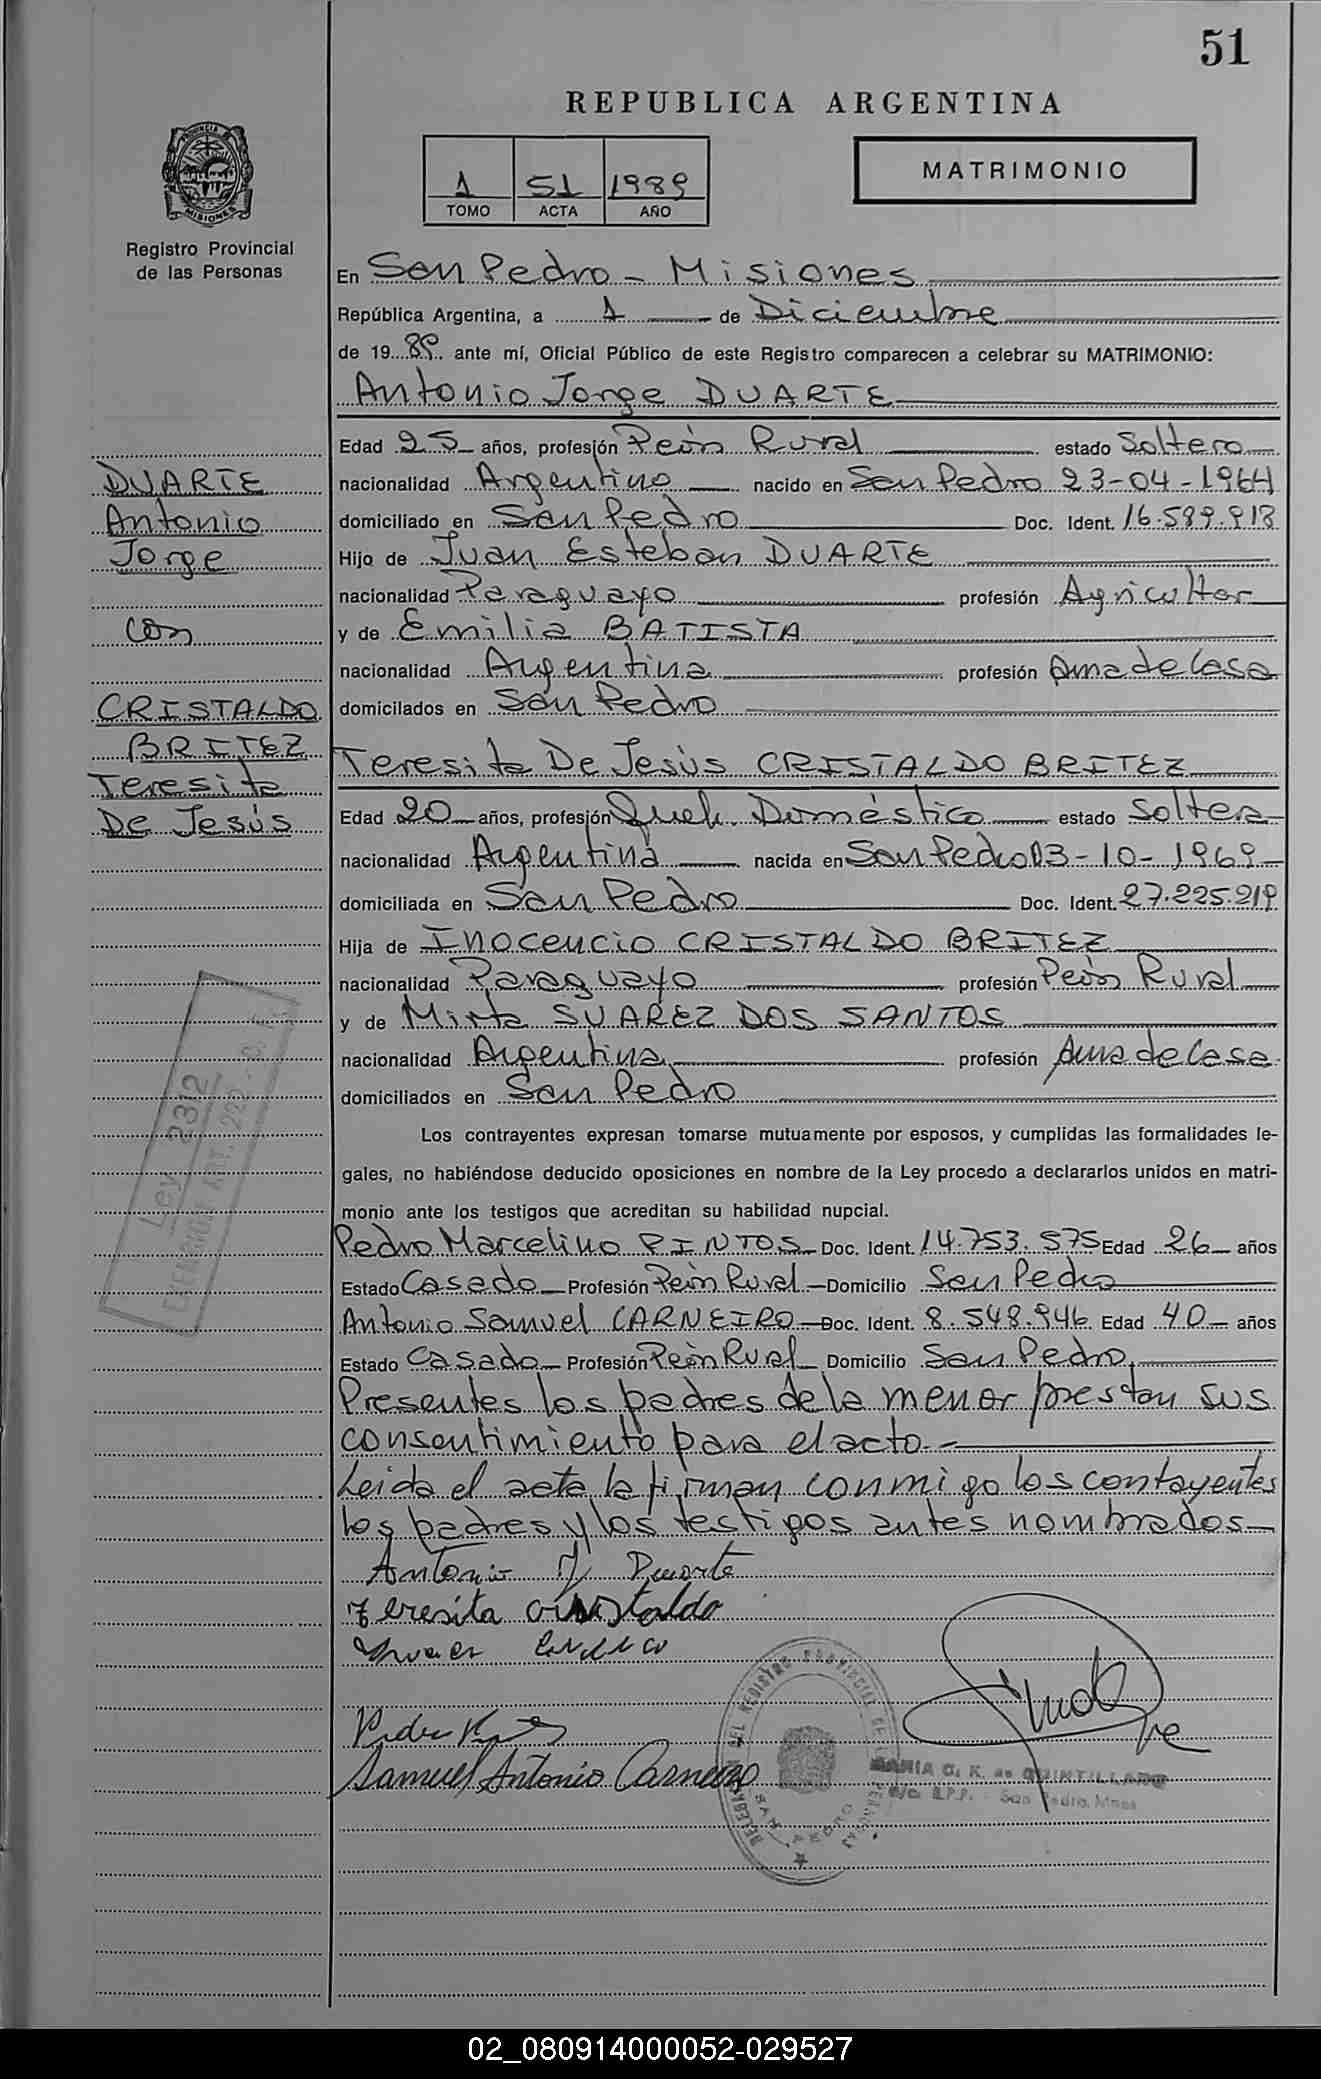 51
REPUBLICA ARGENTINA
MATRIMONIO
1 51 1989
TOMO ACTA AÑO
PROVINCIA DE MISIONES
Registro Provincial
de las Personas
En San Pedro - Misiones
República Argentina, a 1 de Diciembre
de 19 89 ante mí, Oficial Público de este Registro comparecen a celebrar su MATRIMONIO:
Antonio Jorge DUARTE
Edad 25 años, profesión Peón Rural estado Soltero
DUARTE
nacionalidad Argentino nacido en San Pedro 23-04-1964
Antonio
domiciliado en San Pedro Doc. Ident. 16.589.918
Jorge
Hijo de Juan Esteban DUARTE
nacionalidad Paraguayo profesión Agricultor
con
y de Emilia BATISTA
nacionalidad Argentina profesión Ama de Casa
CRISTALDO
domicilados en San Pedro
BRITEZ
Teresita De Jesús CRISTALDO BRITEZ
Teresita
De Jesús
Edad 20 años, profesión Doméstico estado Soltera
nacionalidad Argentina nacida en San Pedro 03-10-1969
domiciliada en San Pedro Doc. Ident. 27.225.219
Hija de Inocencio CRISTALDO BRITEZ
nacionalidad Paraguayo profesión Peón Rural
y de Mirta SUAREZ DOS SANTOS
nacionalidad Argentina profesión Ama de Casa
domiciliados en San Pedro
Ley 2312
ART. 222
Los contrayentes expresan tomarse mutuamente por esposos, y cumplidas las formalidades le-
gales, no habiéndose deducido oposiciones en nombre de la Ley procedo a declararlos unidos en matri-
monio ante los testigos que acreditan su habilidad nupcial.
Pedro Marcelino PINTOS Doc. Ident. 14.753.575 Edad 26 años
Estado Casado Profesión Peón Rural Domicilio San Pedro
Antonio Samuel CARNEIRO Doc. Ident. 8.548.946 Edad 40 años
Estado Casado Profesión Peón Rural Domicilio San Pedro
Presentes los padres de la menor prestan sus
consentimiento para el acto.-
Leida el acta la firman conmigo los contayentes
los padres y los testigos antes nombrados
Antonio J. Duarte
Teresita cristaldo
Samuel Antonio Carneiro
DELEGACION DEL REGISTRO PROVINCIAL DE LAS PERSONAS
SAN PEDRO
MARIA C. K. de QUINTILLANO
R.P.P. - San Pedro, Mnes
02_080914000052-029527